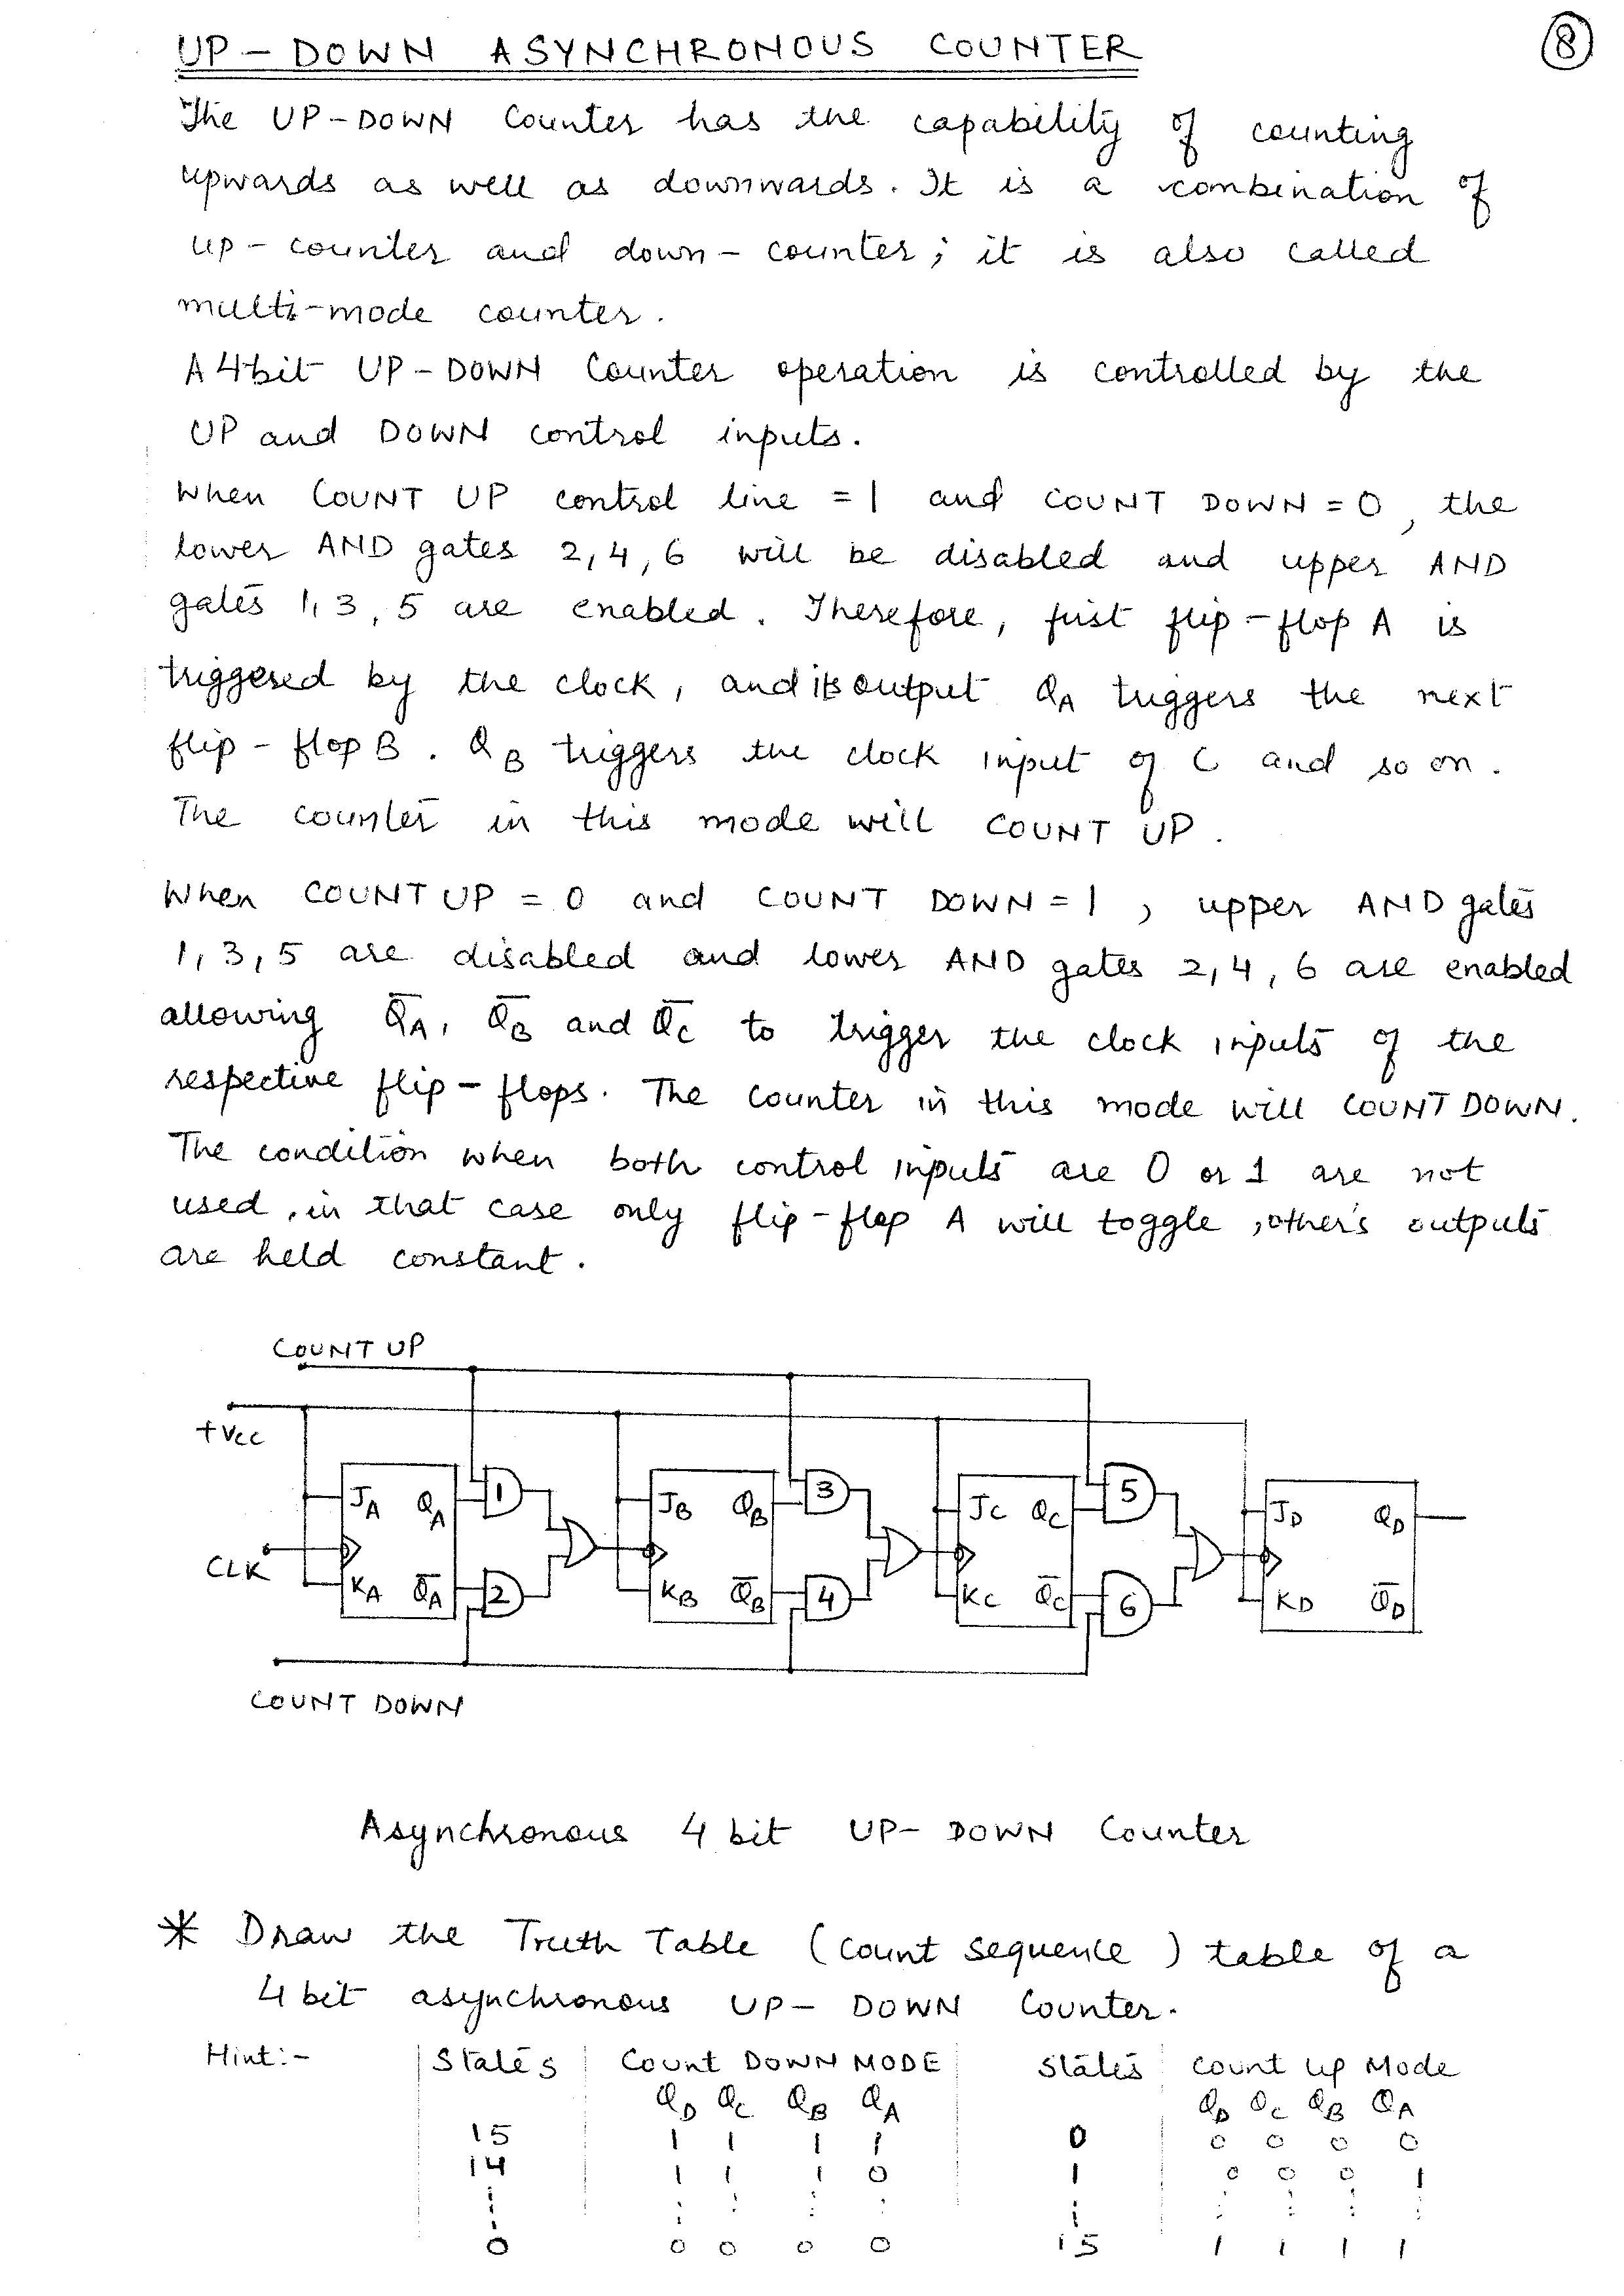 8
UP - DOWN ASYNCHRONOUS COUNTER
The UP-DOWN Counter has the capability of counting
upwards as well as downwards. It is a combination of
up-counter and down-counter; it is also called
multi-mode counter.
A 4bit UP-DOWN Counter operation is controlled by the
UP and DOWN control inputs.
When COUNT UP control line = 1 and COUNT DOWN = 0, the
lower AND gates 2,4,6 will be disabled and upper AND
gates 1,3,5 are enabled. Therefore, first flip-flop A is
triggered by the clock, and its output QA triggers the next
flip-flop B. QB triggers the clock input of C and so on.
The counter in this mode will COUNT UP.
When COUNT UP = 0 and COUNT DOWN = 1, upper AND gates
1,3,5 are disabled and lower AND gates 2,4,6 are enabled
allowing Q̅A, Q̅B and Q̅C to trigger the clock inputs of the
respective flip-flops. The counter in this mode will COUNT DOWN.
The condition when both control inputs are 0 or 1 are not
used, in that case only flip-flop A will toggle, other's outputs
are held constant.
COUNT UP
+Vcc
JA QA 1 JB QB 3 JC QC 5 JD QD
CLK
KA Q̅A 2 KB Q̅B 4 KC Q̅C 6 KD Q̅D
COUNT DOWN
Asynchronous 4 bit UP- DOWN Counter
* Draw the Truth Table (Count Sequence) table of a
4 bit asynchronous UP- DOWN Counter.
Hint:- States Count DOWN MODE States Count Up Mode
QD QC QB QA QD QC QB QA
15 1 1 1 1 0 0 0 0 0
14 1 1 1 0 1 0 0 0 1
0 0 0 0 0 15 1 1 1 1